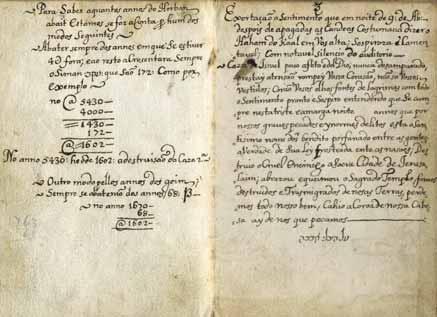 Para Saber aquantos annos do Horban
abait Estamos se fas a Conta p. hum dos
modos Seguintes
Abater sempre dos annos em que Se estiver
4∂ fora; e ao resto acrescentara Sempre
Siman 172: Como por
exemplo
no @ 5430—
4000—
1430
172—
@ 1602—
No anno 5430: he o de 1602: a destruisaõ da Caza 2ª
Outro modo pellos annos dos goim;
Sempre se abateraõ dos annos/68: β—
no anno 1670—
68—
@ 1602—
Exortaçaõ a Sentimento que em noite de 9: de Ab.
despois de apagadas as Candeas Costuma Dizer o
Haham do Kaal em vos alta: Sospiroza E lamen
tavel; Com notavel Silencio do auditorio—
Caza de Israel povo aflito de Deus, nunca desamparado,
prestay atençaõ rompey Vossos Coraçois, não a Vossos
Vestidos; Com Vossos olhos fontes de lagrimas com todo
o Sentimento pranto e Sospiro entendendo que Se cum
pre nesta triste e amarga noite annos que por
nossos graves peccados e enormes delitos esta o San
tissimo nome del bendito profanado entre as gentes
a Verdade de Sua Ley prostrada entre as naçois, Des
truio o Cruel Enemigo a Sacra Cidade de Jerusa
laim; abrazou e queimou o Sagrado Templo, fomos
destruidos e Trasmigrados de nosas Terras, perde
mos todo nosso bem, Cahio a Coroa de nossa Cabe
sa ay de nos que pecamos